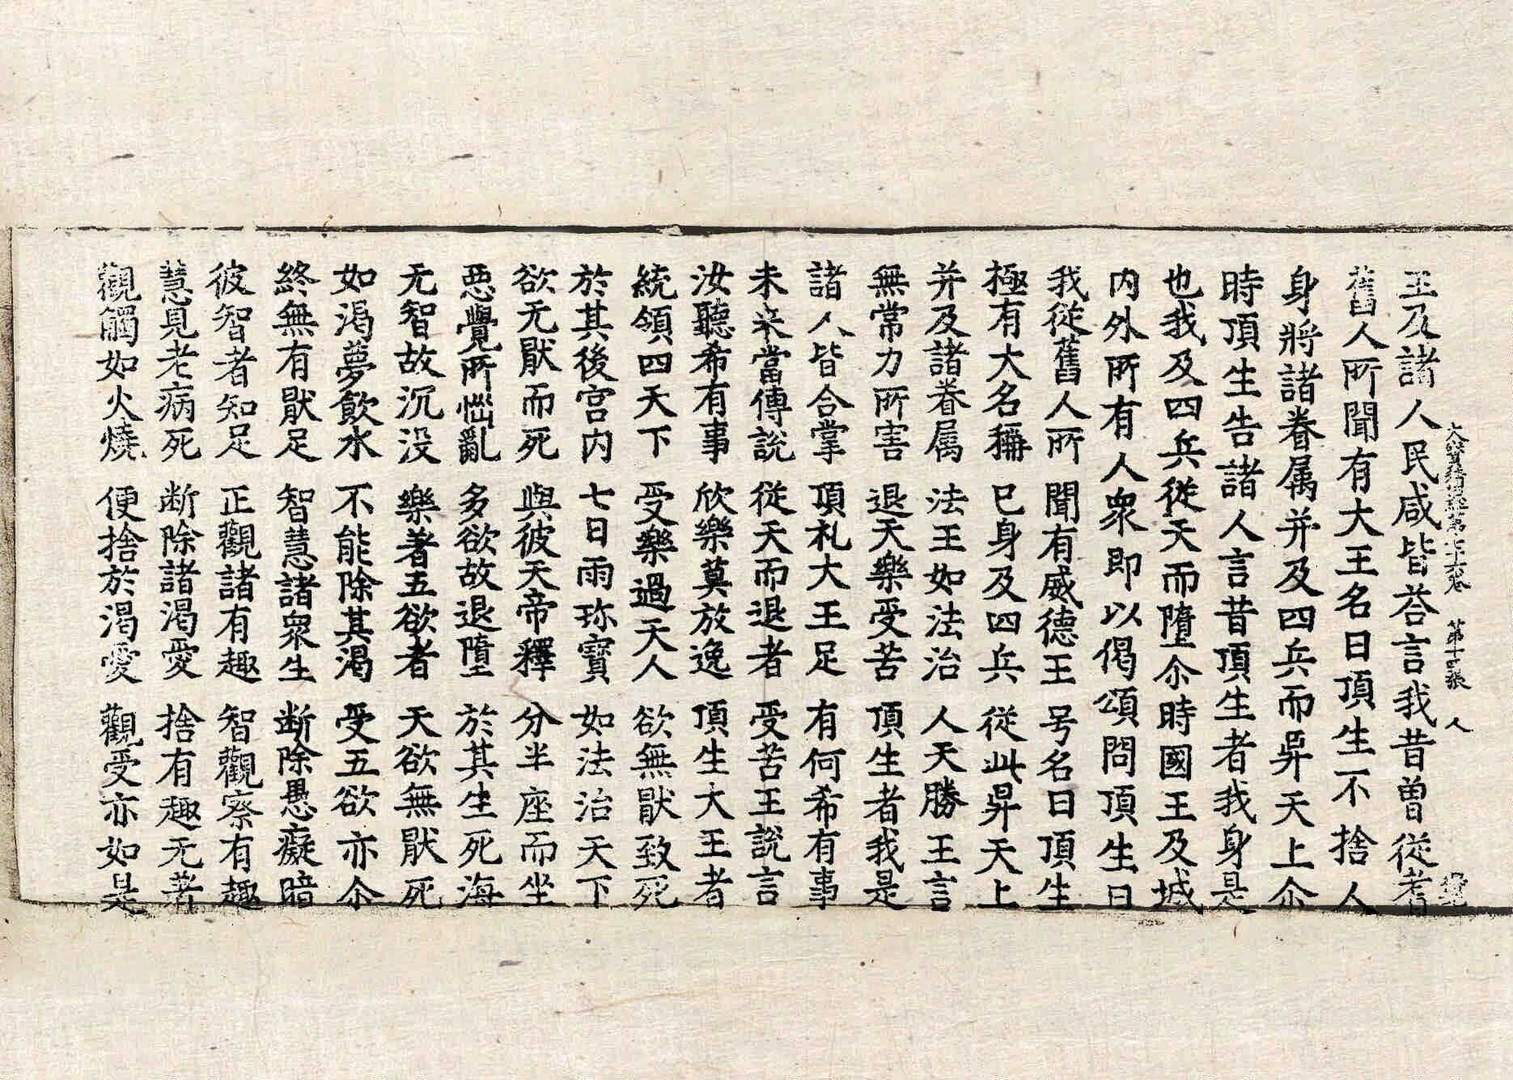 大寶積經第七十六卷 第十四張 人
王及諸人民咸皆荅言我昔曽從耆
舊人所聞有大王名曰頂生不捨人
身將諸眷属并及四兵而昇天上尒
時頂生告諸人言昔頂生者我身是
也我及四兵從天而墮尒時國王及城
内外所有人衆即以偈頌問頂生曰
我從舊人所 聞有威德王 号名曰頂生
極有大名稱 已身及四兵 從此昇天上
并及諸眷属 法王如法治 人天勝王言
無常力所害 退天樂受苦 頂生者我是
諸人皆合掌 頂礼大王足 有何希有事
未来當傳說 從天而退者 受苦王說言
汝聽希有事 欣樂莫放逸 頂生大王者
統領四天下 受樂過天人 欲無猒致死
於其後宫内 七日雨珎寶 如法治天下
欲无猒而死 與彼天帝釋 分半座而坐
惡覺所惱亂 多欲故退墮 於其生死海
无智故沉没 樂著五欲者 天欲無猒死
如渴夢飲水 不能除其渴 受五欲亦尒
終無有猒足 智慧諸衆生 断除愚癡暗
彼智者知足 正觀諸有趣 智觀察有趣
慧見老病死 断除諸渴愛 捨有趣无著
觀觸如火燒 便捨於渴愛 觀受亦如是